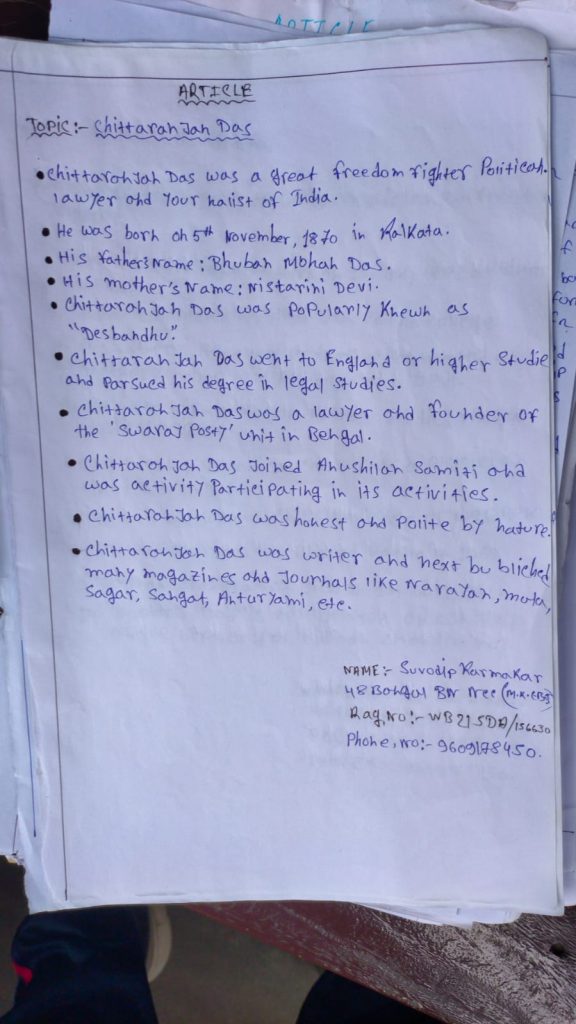 ARTICLE
ARTICLE
Topic:- Chittaranjan Das
• Chittaranjan Das was a great freedom fighter Politican.
lawyer and Your nalist of India.
• He was born on 5th November, 1870 in Kalkata.
• His father's Name: Bhuban Mohan Das.
• His mother's Name: Nistarini Devi.
• Chittaranjan Das was Popularly Knewn as
"Desbandhu".
• Chittaranjan Das went to England or higher Studie
and Parsued his degree in legal Studies.
• Chittaranjan Das was a lawyer and founder of
the 'Swaraj Posty' unit in Bengal.
• Chittaranjan Das Joined Anushilan Samiti and
was activity Participating in its activities.
• Chittaranjan Das was honest and Polite by nature.
• Chittaranjan Das was writer and next bu bliched
many magazines and Journals like Narayan, mota,
Sagar, Sangat, Anturyami, etc.
NAME:- Suvodip Karmakar
48 Bengal BN Ncc
Rag, No:- WB21SDA/156630
Phone, no:- 9609178450.